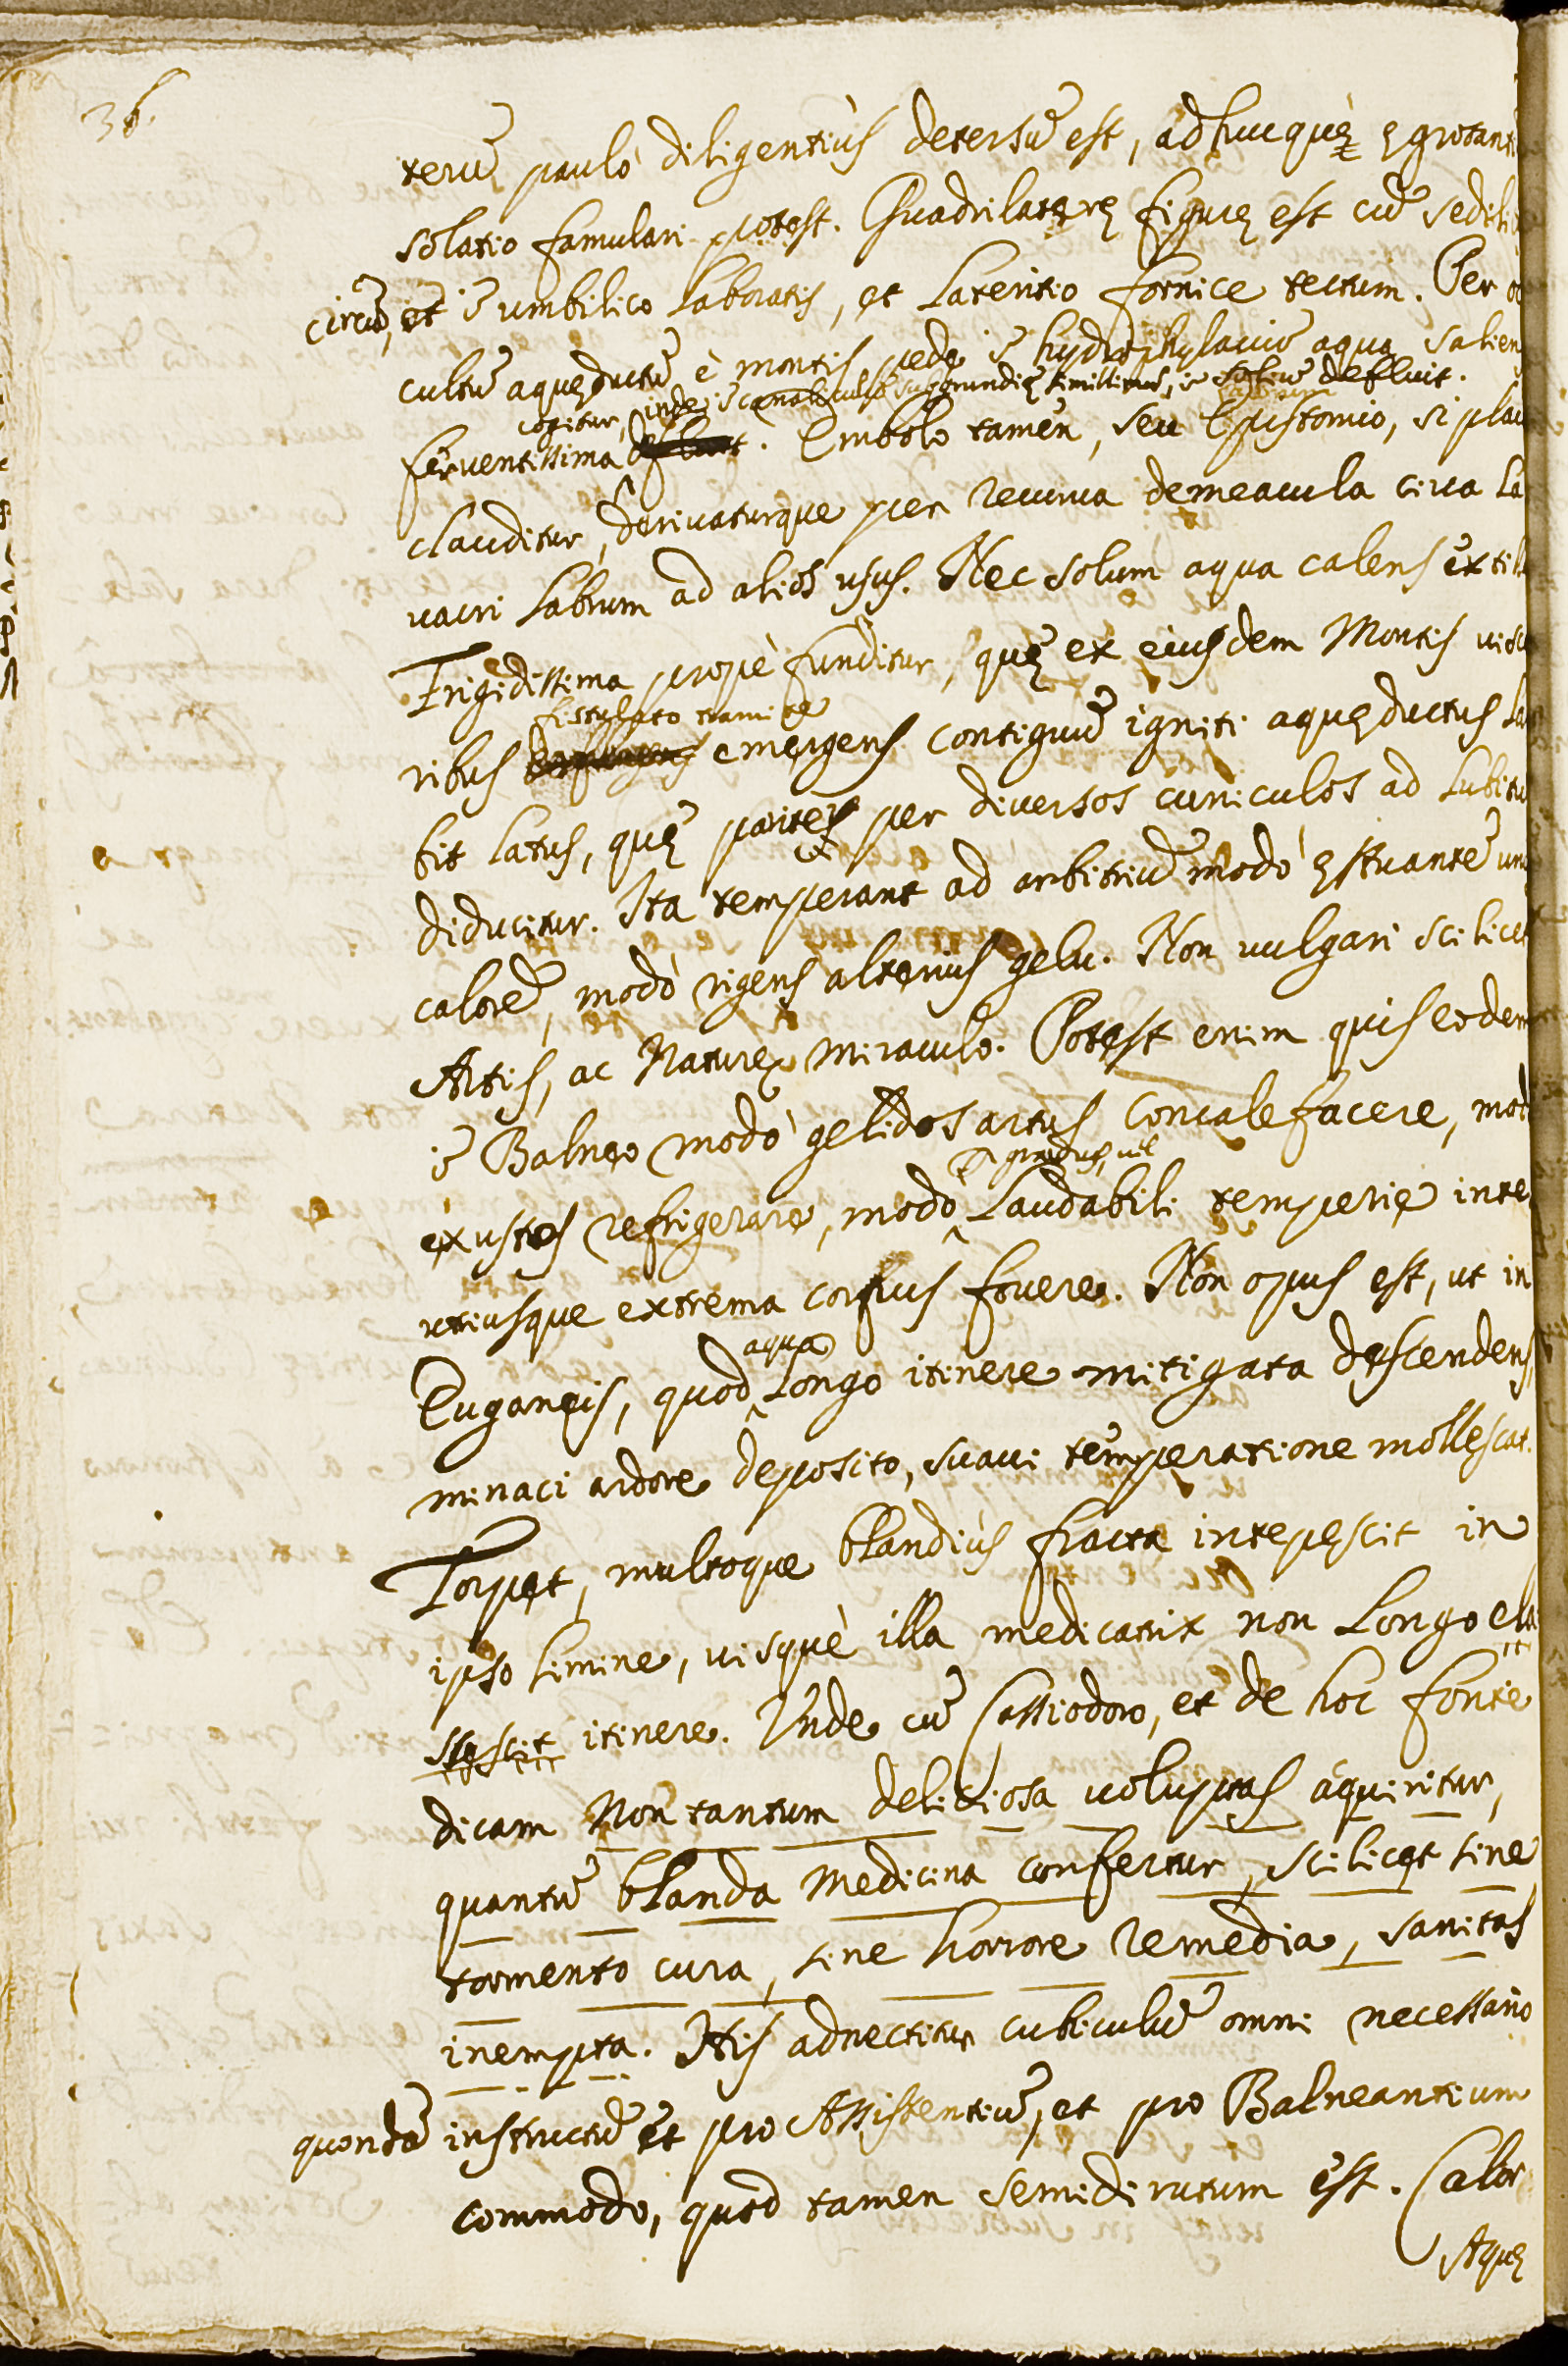 36.
terū paulò diligentiùs detersū est, adhucquȩ̀ ȩgrotant
solatio famulari potest. Quadrilaterȩ figurȩ est cū sedili
circū, et ī umbilico laboratis, et Lateritio fornice tectum. Per oc
cultū aquȩductū è montis pede ī hydrophylaciū aqua salien
cogitur, inde ī canaliculū suggrundiȩ simillimū, ī defluit.
ferventissima. Embolo tamen, seu Epistomio, si plac
clauditur, deriuaturque per recurua demeacula circa La
uacri Labrum ad alios usus. Nec solum aqua calens extill
Frigidissima propè funditur, quȩ ex eiusdem Montis uisce
fistulato tramite
ribus emergens contiguū igniti aquȩductus la
bit Latus, quȩ pariter per diversos cuniculos ad Lubitū
diducitur. Ita temperant ad arbitriū modò ȩstuantē un
calorē, modò rigens alterius gelu. Non vulgari scilicet
Artis, ac Naturȩ miraculo. Potest enim quis eodem
ī Balneo modò gelidos artus concalefacere, mod
gradus, uel
exustos refrigerare, modò Laudabili temperie inte
utriusque extrema corpus fouere. Non opus est, ut in
aqua
Euganeis, quod Longo itinere mitigata descendens,
minaci ardore deposito, suaui temperatione mollescat.
Torpet, multoque blandiùs fracta intepescit in
ipso limine, uisquè illa medicatrix non Longo ela
itinere. Unde cū Cassiodoro, et de hoc fonte
dicam Non tantum delitiosa uoluptas aquiritur,
quantū blanda Medicina confertur, scilicet sine
tormento cura, sine horrore remedia, sanitas
inempta. His adnectitur cubiculū omni necessario
quondā instructū et pro Assistentiū, et pro Balneantium
commodo, quod tamen semidirutum est. Calor
Aquȩ